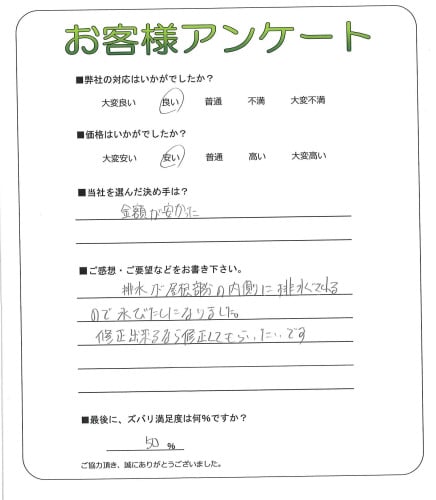 お客様アンケート
■弊社の対応はいかがでしたか?
大変良い 良い 普通 不満 大変不満
■価格はいかがでしたか?
大変安い 安い 普通 高い 大変高い
■当社を選んだ決め手は?
金額が安かった
■ご感想・ご要望などをお書き下さい。
排水が屋根部分の内側に排水されてる
ので水びたしになりました。
修正出来るなら修正してもらいたいです
■最後に、ズバリ満足度は何%ですか?
50 %
ご協力頂き、誠にありがとうございました。